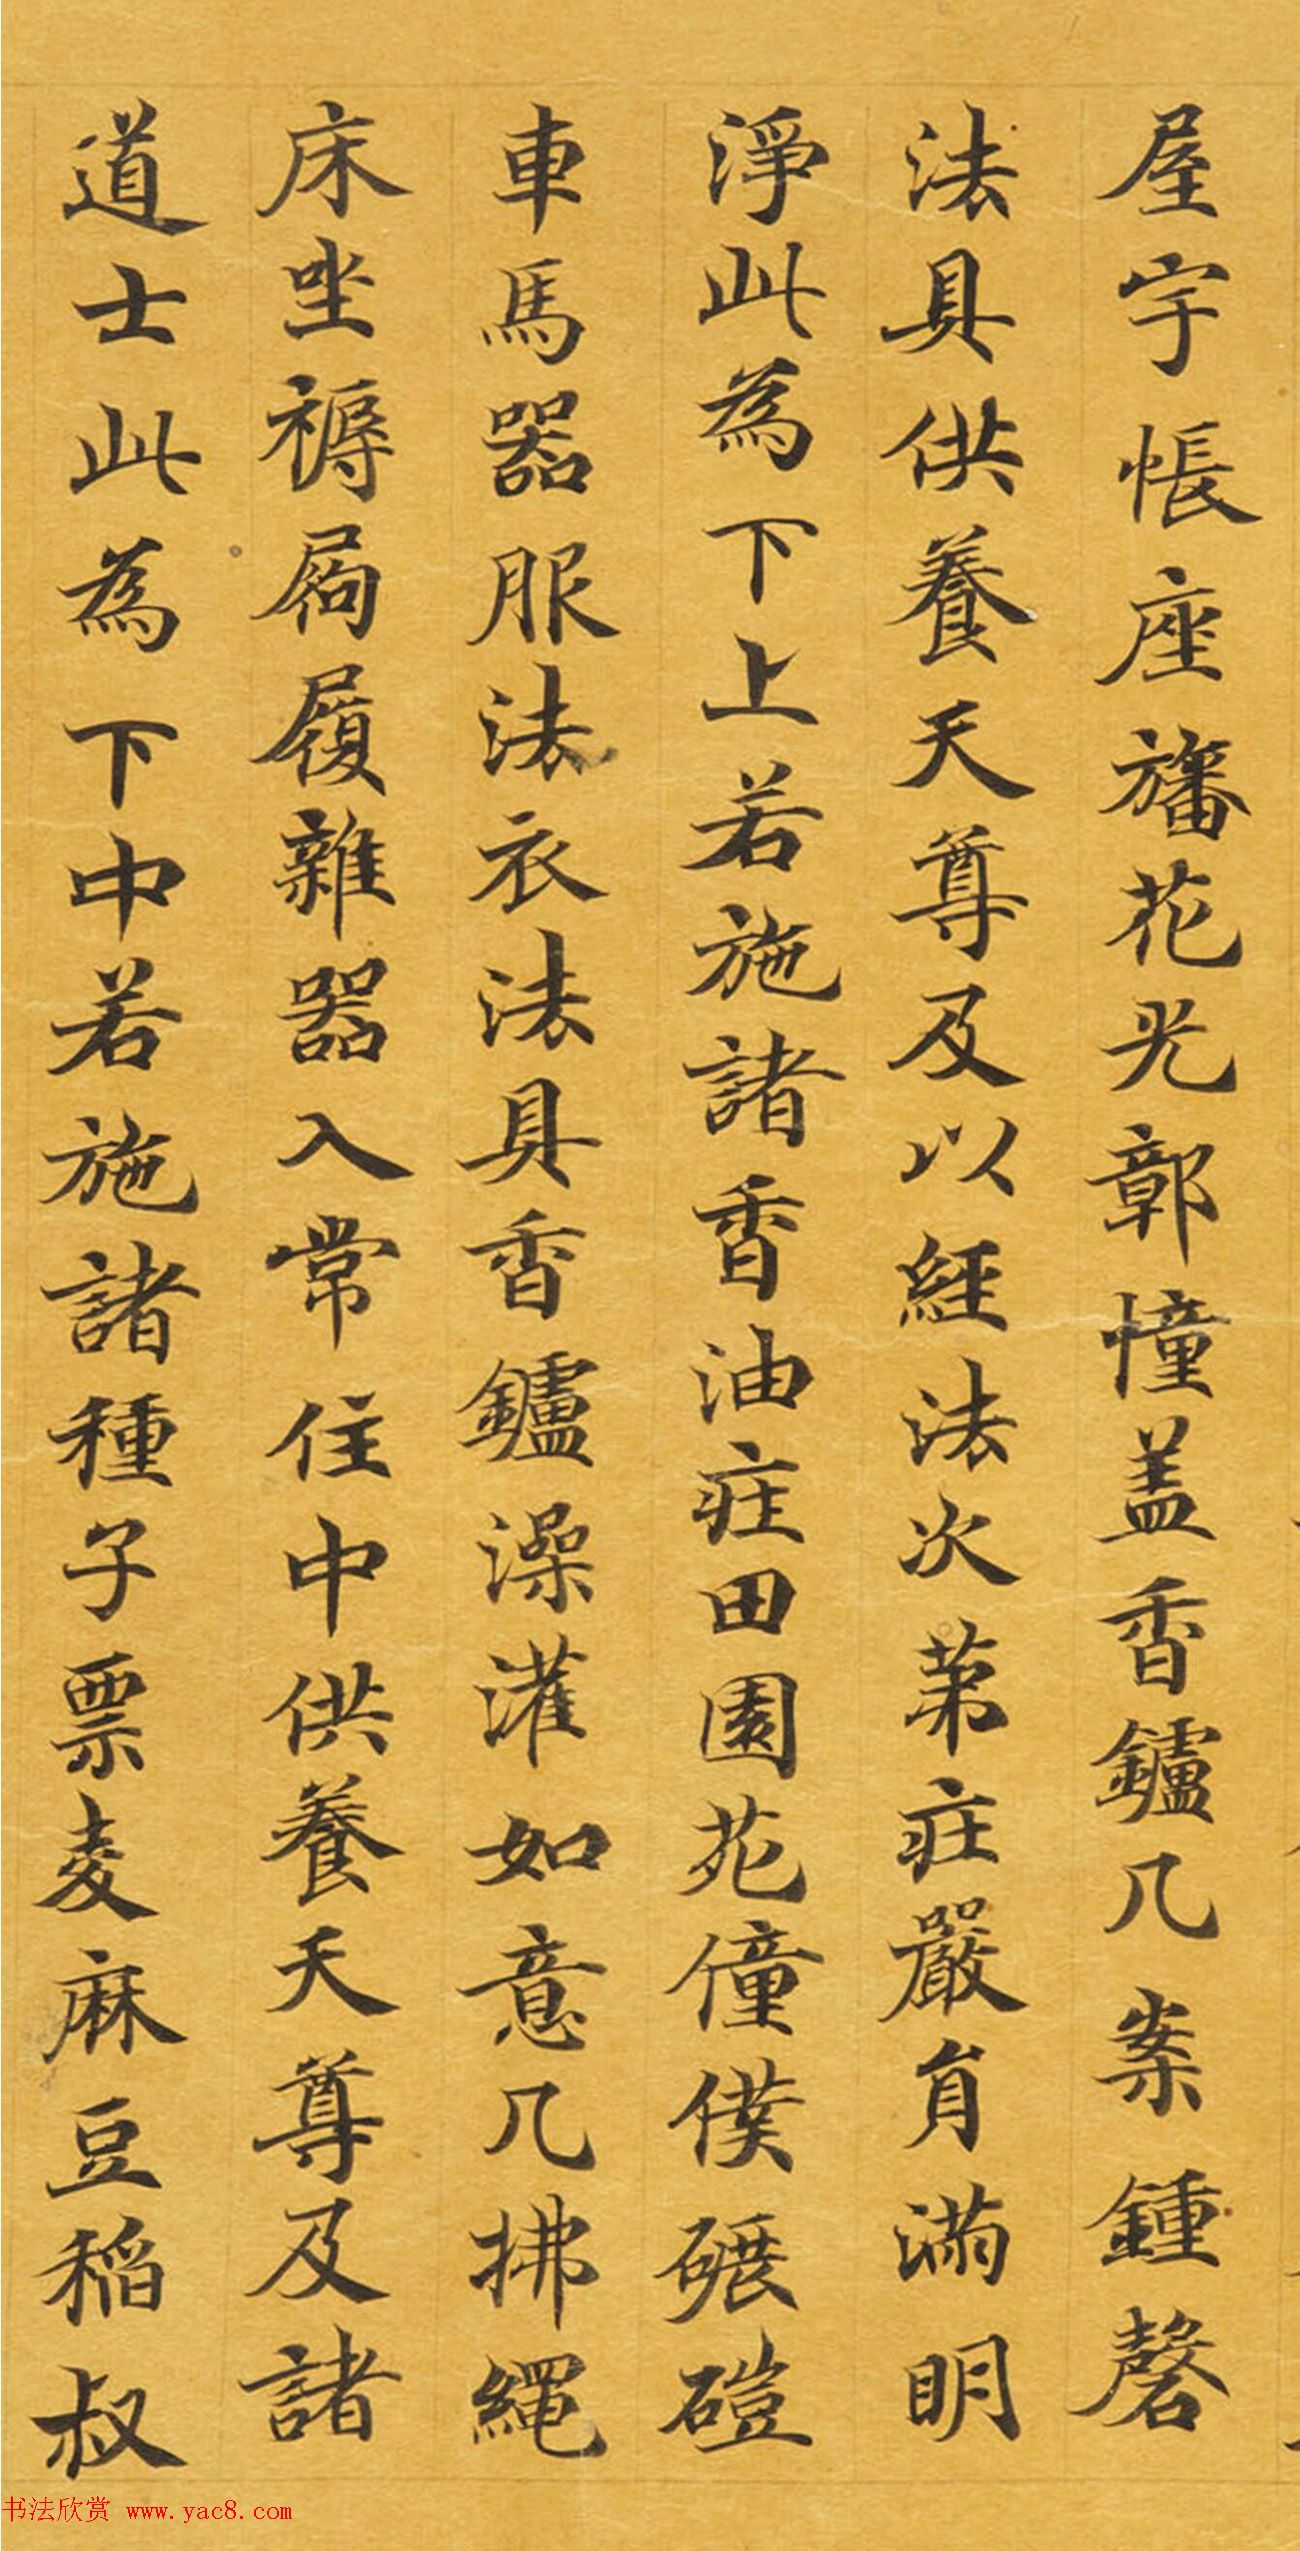 屋宇帳座旛花光鄣幢盖香鑪几案鍾磬
法具供養天尊及以經法次苐莊嚴肙滿明
淨此為下上若施諸香油莊田園苑僮僕碾磑
車馬器服法衣法具香鑪澡灌如意几拂繩
床坐褥屩履雜器入常住中供養天尊及諸
道士此為下中若施諸種子粟麦麻豆稻叔
书法欣赏 www.yac8.com